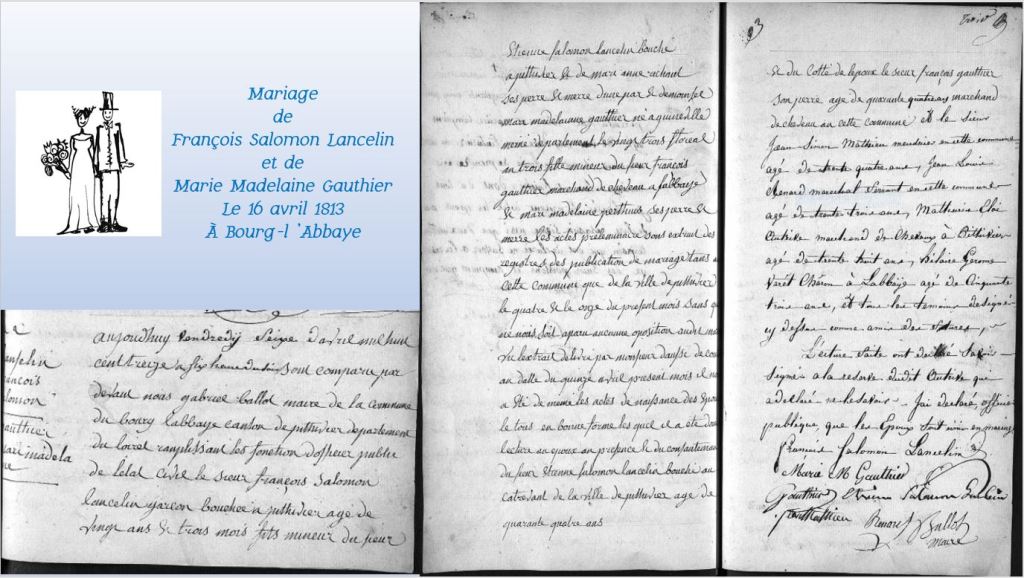 Mariage
de
François Salomon Lancelin
et de
Marie Madelaine Gauthier
Le 16 avril 1813
À Bourg-l 'Abbaye
anjourdhuy vendredy Seize d'avril mil huit
cent treize a six heure du soir sont comparu par
devant nous gabriel ballot maire de la Commune
du bourg labbaye canton de puthivier departement
du loiret ranplissant les fonction dofficier public
de letat Civil le sieur françois Salomon
lancelin garcon boucher a puthivier agé de
vingt ans & trois mois fils mineur du sieur
ancelin
rancois
alomon
gauthier
mari madela
Etienne salomon lancelin bouché
a puthivier & de mari anne
ses perre & merre dune par & demoiselle
mari madelainne gauthier né a
meme departement le vingt trois floreal
an trois fille mineur du sieur francois
gauthier marchand de cheveau a labbaye
& mari madelaine perthuis ses perre &
merre les actes preleminaire sont extrait des
registres des publication de mariage dans
cette commune que de la ville de puthivier
le quatre & le onze du present mois sans
ne nous soit aparu aucunne oposition
vu extrait delivré par monsieur
an datte du quinze avril present mois il
a été de meme les actes de naissance des
le tous en bonne forme les quel il a été
lecture au epoux an presence & du consantement
du sieur Etienne salomon lancelin bouché au
de la ville de puthivier agé de
quarante quatre ans
3
& du Cotté de lepoux le sieur francois gauthier
son perre agé de quarante quatre ans marchand
de cheveau an cette commune et le Sieur
Jean Simon Mathieu meunier en cette commune
agé de trente quatre ans, Jean Louis
Chenard marechal ferrant en cette commune
agé de trente trois ans, Mathurin Eloi
marchand de Chevaux à Pithivier
agé de trente huit ans, Hilaire Gerome
Charon à Labbaye agé de Cinquante
trois ans, et tous les temoins designé
cy dessus comme amis des
Lecture faite ont declaré savoir
signé a la reserve dudit qui
a declaré ne le savoir. J'ai declaré, officier
publique, que les Epoux sont unis en mariage
François Salomon Lancelin
Marie M Gauthier
Gauthier Etienne Salomon Lancelin
Mathieu Ballot
maire